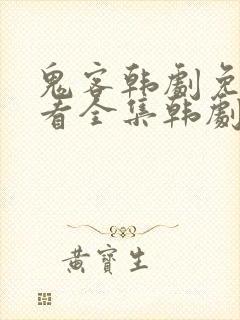 鬼客韩劇免
看全集韩劇
黄寶生